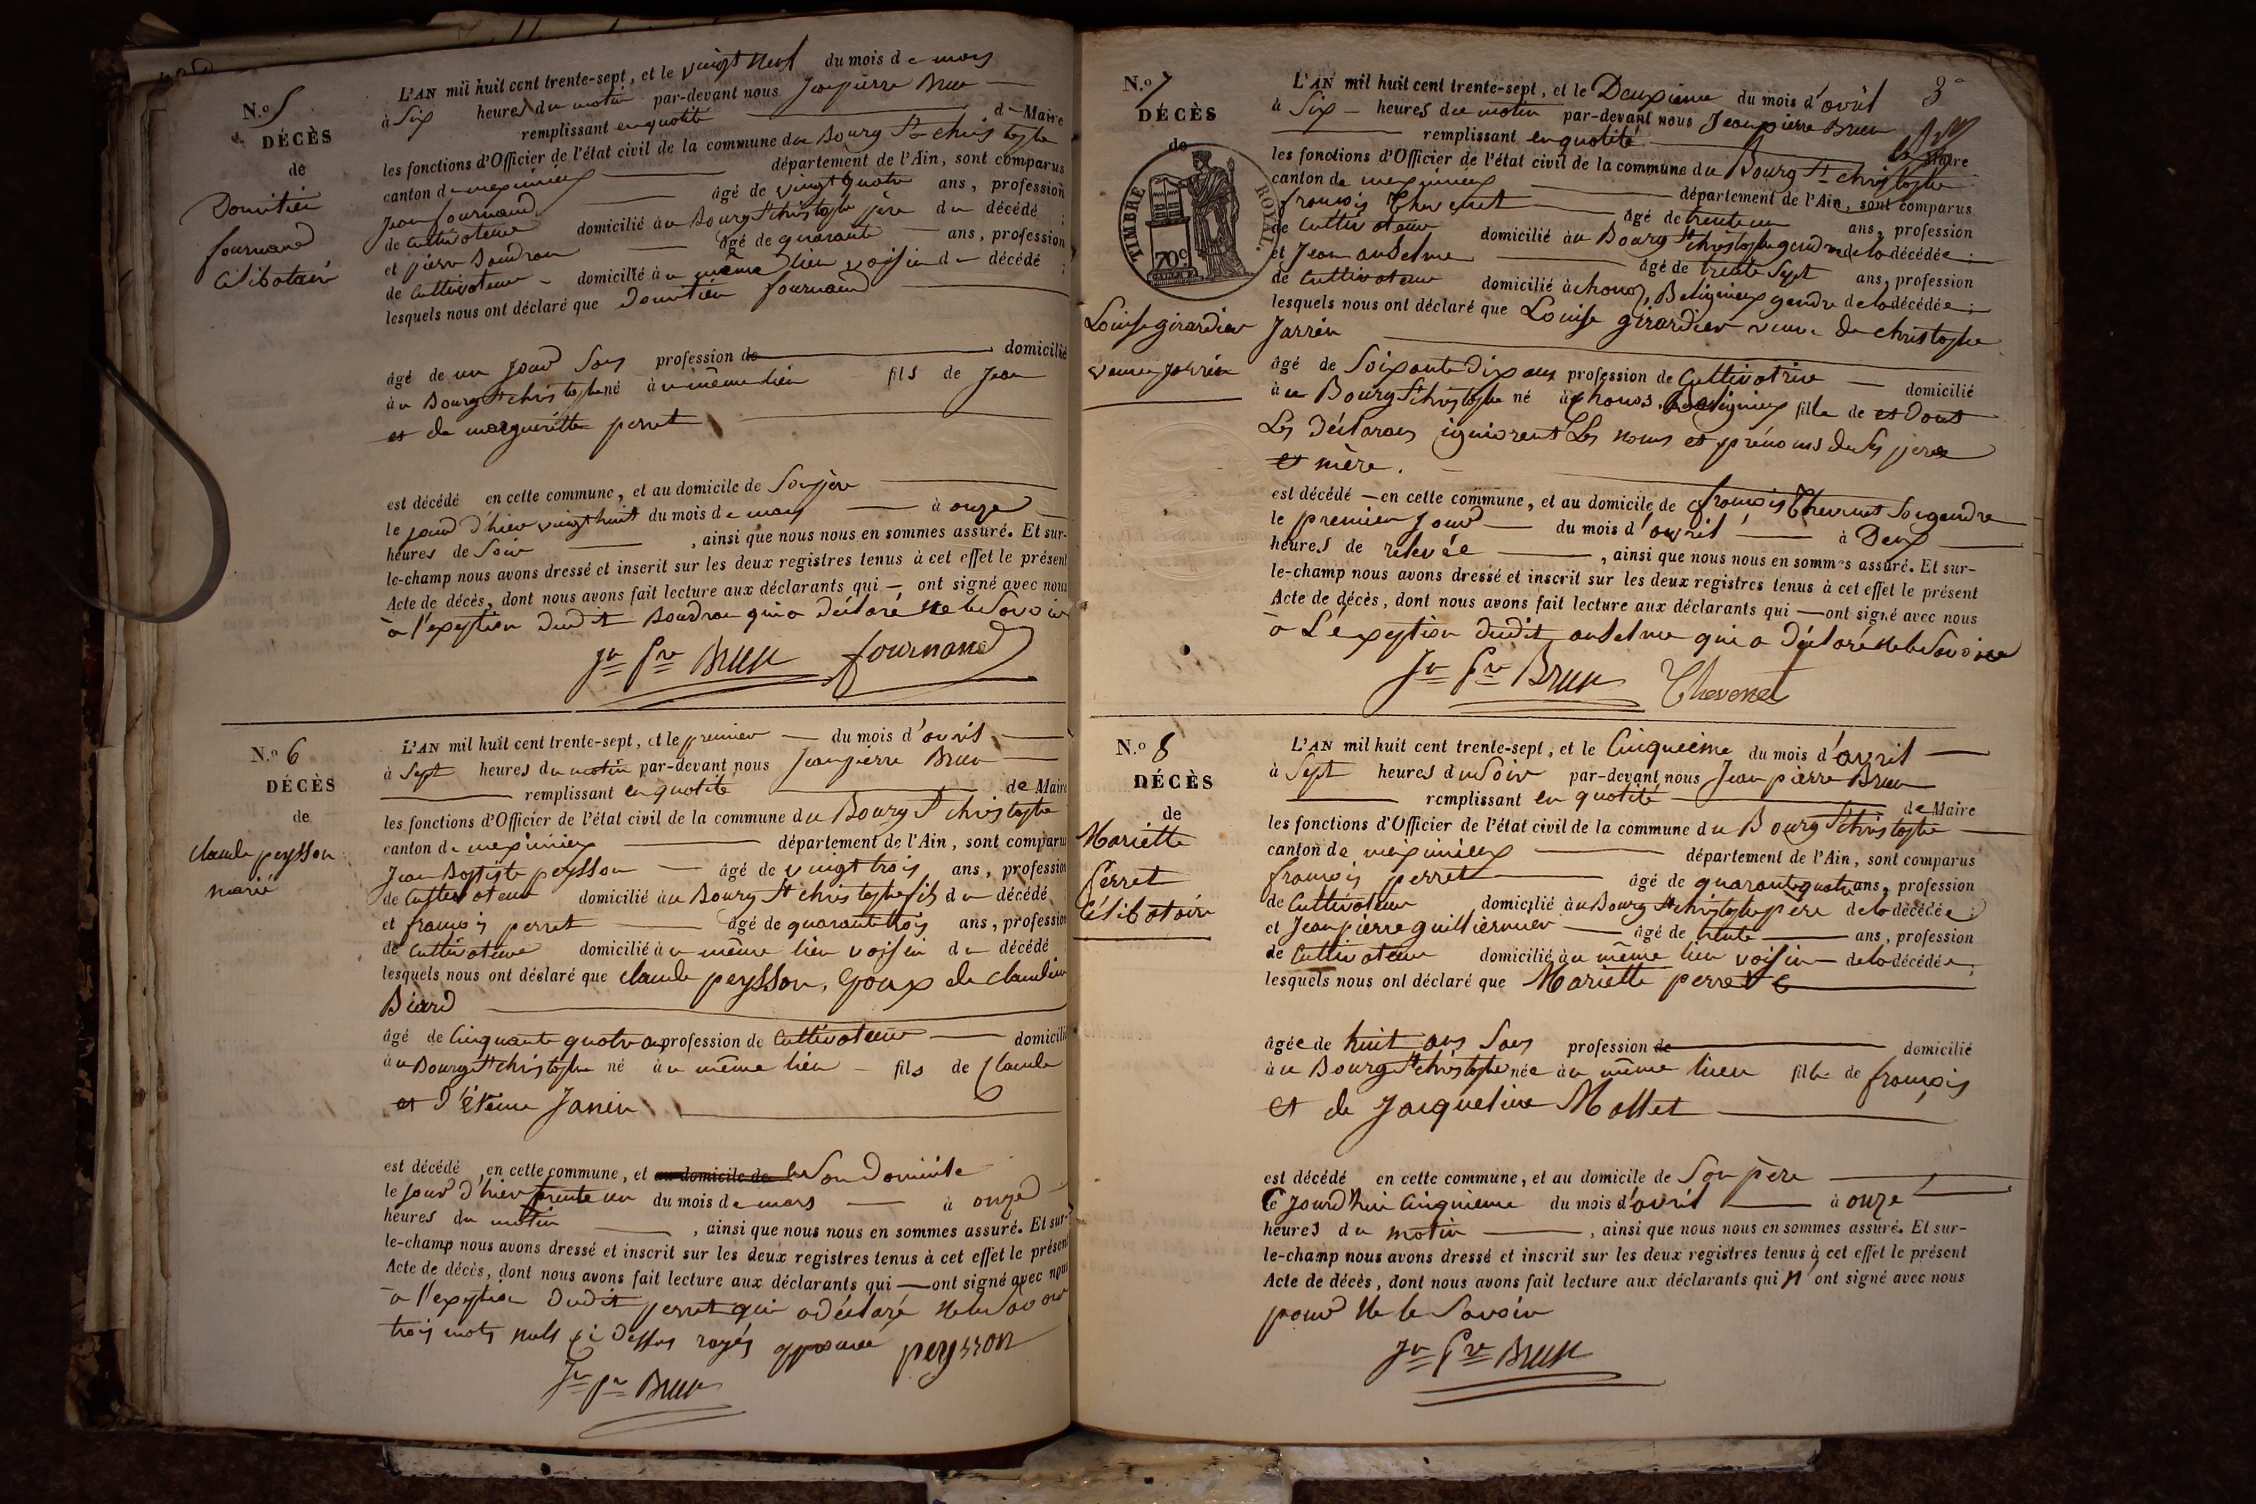 N.º 5
DÉCÈS
de
Domitien
fournand
Célibatair
L'AN mil huit cent trente-sept, et le vingt neuf du mois de mars
à Six heures du matin par-devant nous Jean pierre Brun
remplissant en quotité de Maire
les fonctions d'Officier de l'état civil de la commune du Bourg St christophe
canton de meximieux département de l'Ain, sont comparus
Jean fournand âgé de vingt quatre ans, profession
de Cultivateur domicilié au Bourg St christophe père du décédé ;
et pierre Baudran âgé de quarante ans, profession
de Cultivateur domicilié au même lieu voisin du décédé ;
lesquels nous ont déclaré que Domitien fournand
âgé de un jour Sans profession de domicilié
à u Bourg St christophe né à u même lieu fils de Jean
et de margueritte perret
est décédé en cette commune, et au domicile de Son père
le jour d'hier vingt huit du mois de mars à onze
heures de Soir , ainsi que nous nous en sommes assuré. Et sur-
le-champ nous avons dressé et inscrit sur les deux registres tenus à cet effet le présent
Acte de décès, dont nous avons fait lecture aux déclarants qui ont signé avec nous
a l'exeption dudit Baudran qui a déclaré ne le Savoir
Jn Pre Brun fournand
N.º 6
DÉCÈS
de
claude peysson
marié
L'AN mil huit cent trente-sept, et le premier du mois d'avril
à Sept heures du matin par-devant nous Jean pierre Brun
remplissant en quotité de Maire
les fonctions d'Officier de l'état civil de la commune du Bourg St christophe
canton de meximieux département de l'Ain, sont comparus
Jean Baptiste peysson âgé de vingt trois ans, profession
de Cultivateur domicilié au Bourg St christophe fils du décédé
et françois perret âgé de quarante trois ans, profession
de Cultivateur domicilié à u même lieu voisin du décédé
lesquels nous ont déclaré que claude peysson, Epoux de claudine
Biard
âgé de Cinquante quatre ans profession de Cultivateur domicilié
à u Bourg St christophe né à u même lieu fils de Claude
et d'Etienne Janin
est décédé en cette commune, et au domicile de en Son Domicile
le jour d'hier trente un du mois de mars à onze
heures du matin , ainsi que nous nous en sommes assuré. Et sur-
le-champ nous avons dressé et inscrit sur les deux registres tenus à cet effet le présent
Acte de décès, dont nous avons fait lecture aux déclarants qui ont signé avec nous
a l'exeption dudit perret qui a déclaré ne le Savoir
trois mots nuls ci dessus rayés approuvé peysson
Jn Pre Brun
N.º 7
DÉCÈS
de
TIMBRE ROYAL.
70c
Louise girardier
veuve Jarrin
3
L'AN mil huit cent trente-sept, et le Deuxieme du mois d'avril
à Six heures du matin par-devant nous Jean pierre Brun
remplissant en quotité de Maire
les fonctions d'Officier de l'état civil de la commune du Bourg St christophe
canton de meximieux département de l'Ain, sont comparus
françois Thevenet âgé de trente un ans, profession
de Cultivateur domicilié au Bourg St christophe gendre de la décédée ;
et Jean anselme âgé de trente Sept ans, profession
de Cultivateur domicilié à chanoz, Beligneux gendre de la décédée ;
lesquels nous ont déclaré que Louise girardier veuve de christophe
Jarrin
âgé de Soixante Dix ans profession de Cultivatrice domicilié
à u Bourg St christophe né à chanos, Beligneux fille de et dont
Les Déclarans igniorent Les noms et prénoms de Ses père
et mère.
est décédé en cette commune, et au domicile de françois Thevenet Son gendre
le premier Jour du mois d'avril à Deux
heures de relevée , ainsi que nous nous en sommes assuré. Et sur-
le-champ nous avons dressé et inscrit sur les deux registres tenus à cet effet le présent
Acte de décès, dont nous avons fait lecture aux déclarants qui ont signé avec nous
a L'exeption dudit anselme qui a déclaré ne le Savoir
Jn Pre Brun Thevenet
N.º 8
DÉCÈS
de
Mariette
Perret
Célibatair
L'AN mil huit cent trente-sept, et le Cinquieme du mois d'avril
à Sept heures du Soir par-devant nous Jean pierre Brun
remplissant en quotité de Maire
les fonctions d'Officier de l'état civil de la commune du Bourg St christophe
canton de meximieux département de l'Ain, sont comparus
françois perret âgé de quarante quatre ans, profession
de Cultivateur domicilié au Bourg St christophe père de la décédée ;
et Jean pierre guilliermier âgé de trente ans, profession
de Cultivateur domicilié à u même lieu voisin de la décédée ;
lesquels nous ont déclaré que Mariette perret
âgée de huit ans Sans profession de domicilié
à u Bourg St christophe née à u même lieu fille de françois
et de Jacqueline Mollet
est décédé en cette commune, et au domicile de Son père
Ce Jourd'hui Cinquieme du mois d'avril à onze
heures du matin , ainsi que nous nous en sommes assuré. Et sur-
le-champ nous avons dressé et inscrit sur les deux registres tenus à cet effet le présent
Acte de décès, dont nous avons fait lecture aux déclarants qui n'ont signé avec nous
pour ne le Savoir
Jn Pre Brun